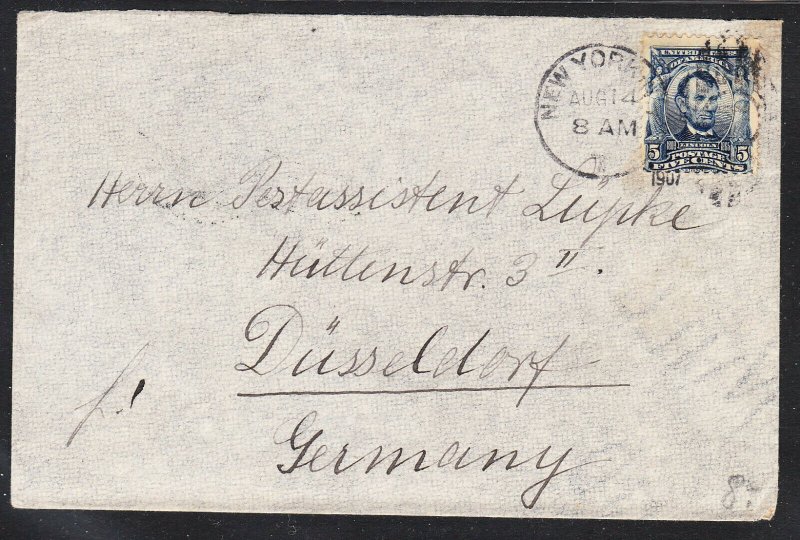 NEW YORK
AUG 14
8 AM
1907
UNITED STATES
OF AMERICA
LINCOLN
5 POSTAGE 5
FIVE CENTS
Herrn Postassistent Lüpke
Hüttenstr. 3 II.
Düsseldorf
Germany